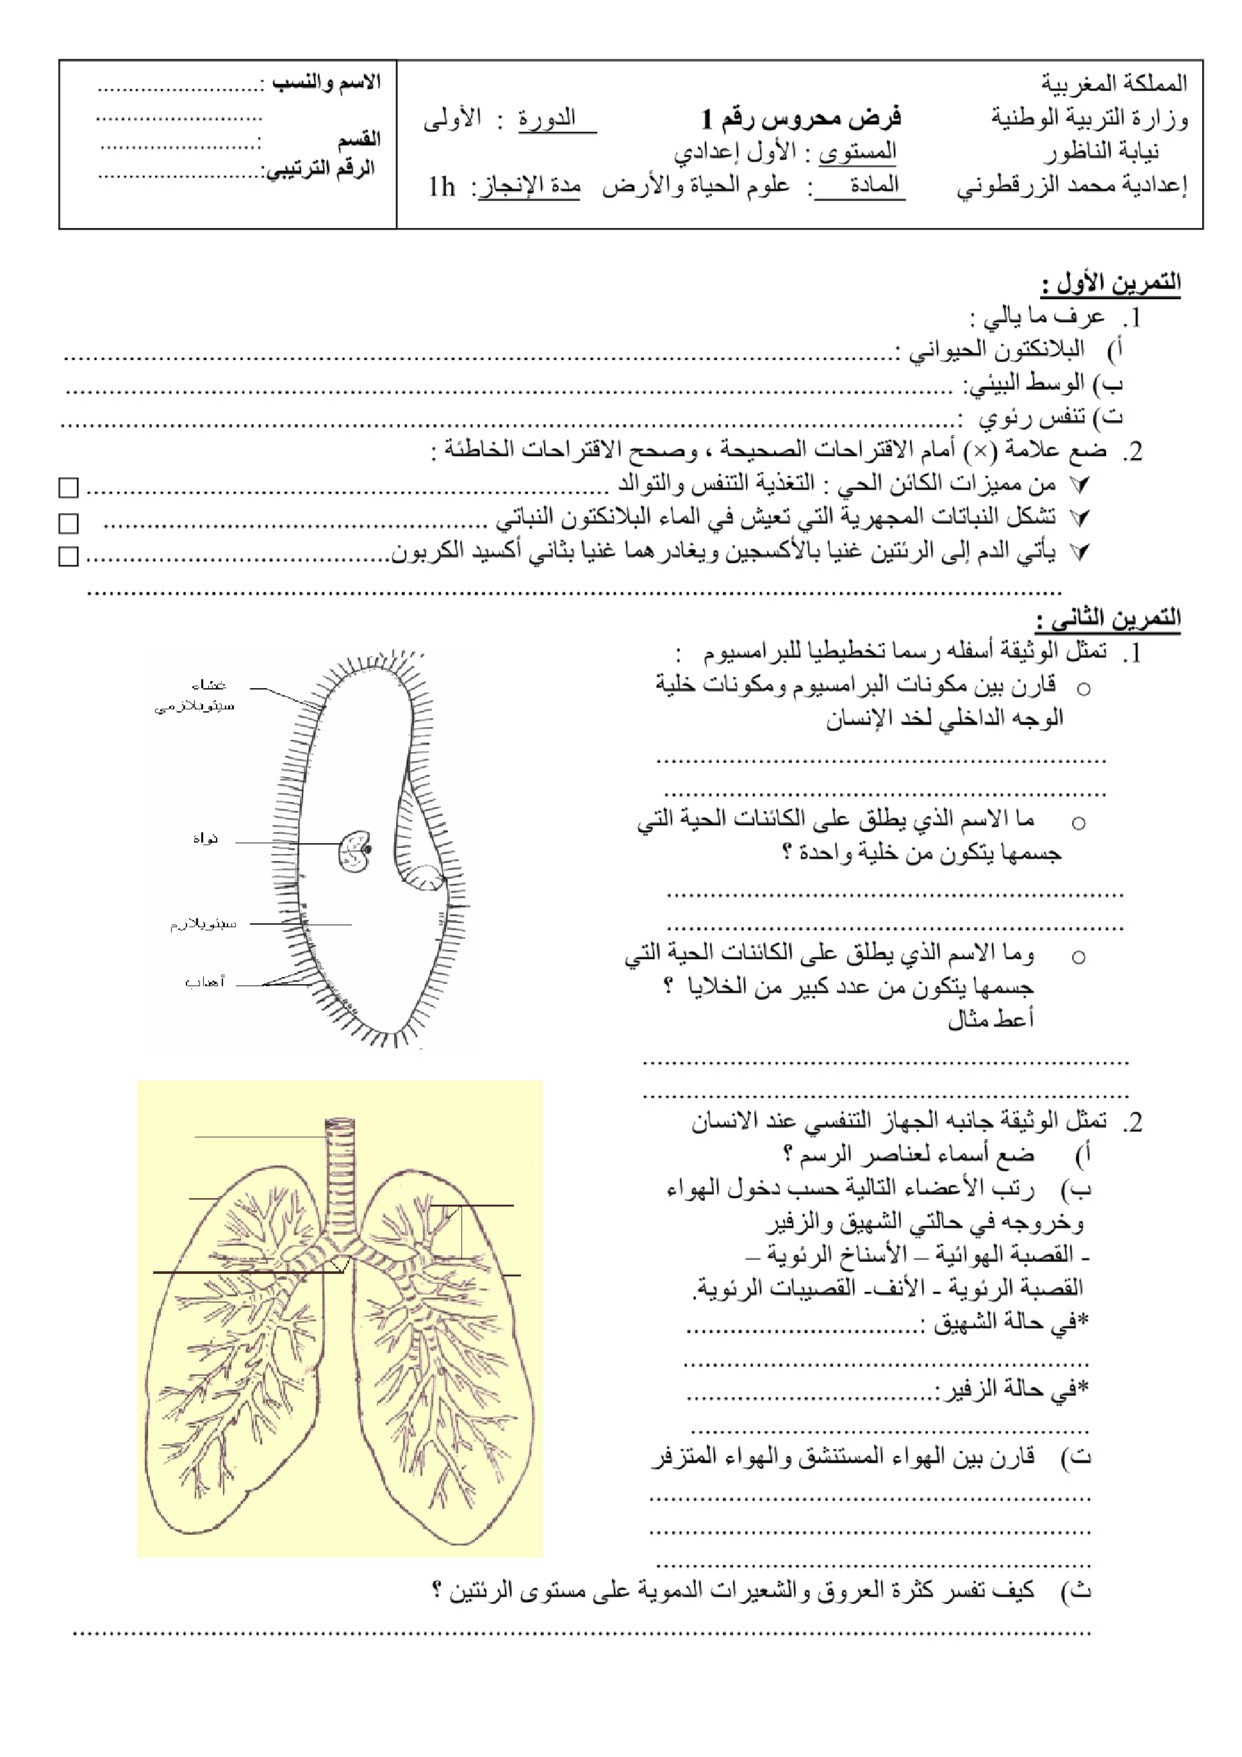 المملكة المغربية
وزارة التربية الوطنية
نيابة الناظور
إعدادية محمد الزرقطوني
فرض محروس رقم 1 الدورة : الأولى
المستوى : الأول إعدادي
المادة : علوم الحياة والأرض مدة الإنجاز: 1h
الاسم والنسب :..........................
...........................
القسم :.........................
الرقم الترتيبي:..........................
التمرين الأول :
1. عرف ما يالي :
أ) البلانكتون الحيواني :..................................................................................................................
ب) الوسط البيئي: ..........................................................................................................................
ت) تنفس رئوي :...........................................................................................................................
2. ضع علامة (×) أمام الاقتراحات الصحيحة ، وصحح الاقتراحات الخاطئة :
من مميزات الكائن الحي : التغذية التنفس والتوالد ........................................................................ □
تشكل النباتات المجهرية التي تعيش في الماء البلانكتون النباتي ..................................................... □
يأتي الدم إلى الرئتين غنيا بالأكسجين ويغادرهما غنيا بثاني أكسيد الكربون.......................................... □
......................................................................................................................................
التمرين الثاني :
1. تمثل الوثيقة أسفله رسما تخطيطيا للبرامسيوم :
○ قارن بين مكونات البرامسيوم ومكونات خلية
الوجه الداخلي لخد الإنسان
..............................................................
.............................................................
○ ما الاسم الذي يطلق على الكائنات الحية التي
جسمها يتكون من خلية واحدة ؟
...............................................................
...............................................................
○ وما الاسم الذي يطلق على الكائنات الحية التي
جسمها يتكون من عدد كبير من الخلايا ؟
أعط مثال
...................................................................
...................................................................
غشاء
سيتوبلازمي
نواة
سيتوبلازم
أهداب
2. تمثل الوثيقة جانبه الجهاز التنفسي عند الانسان
أ) ضع أسماء لعناصر الرسم ؟
ب) رتب الأعضاء التالية حسب دخول الهواء
وخروجه في حالتي الشهيق والزفير
- القصبة الهوائية – الأسناخ الرئوية –
القصبة الرئوية - الأنف- القصيبات الرئوية.
*في حالة الشهيق :................................
........................................................
*في حالة الزفير:..................................
.......................................................
ت) قارن بين الهواء المستنشق والهواء المتزفر
.............................................................
.............................................................
............................................................
ث) كيف تفسر كثرة العروق والشعيرات الدموية على مستوى الرئتين ؟
............................................................................................................................................